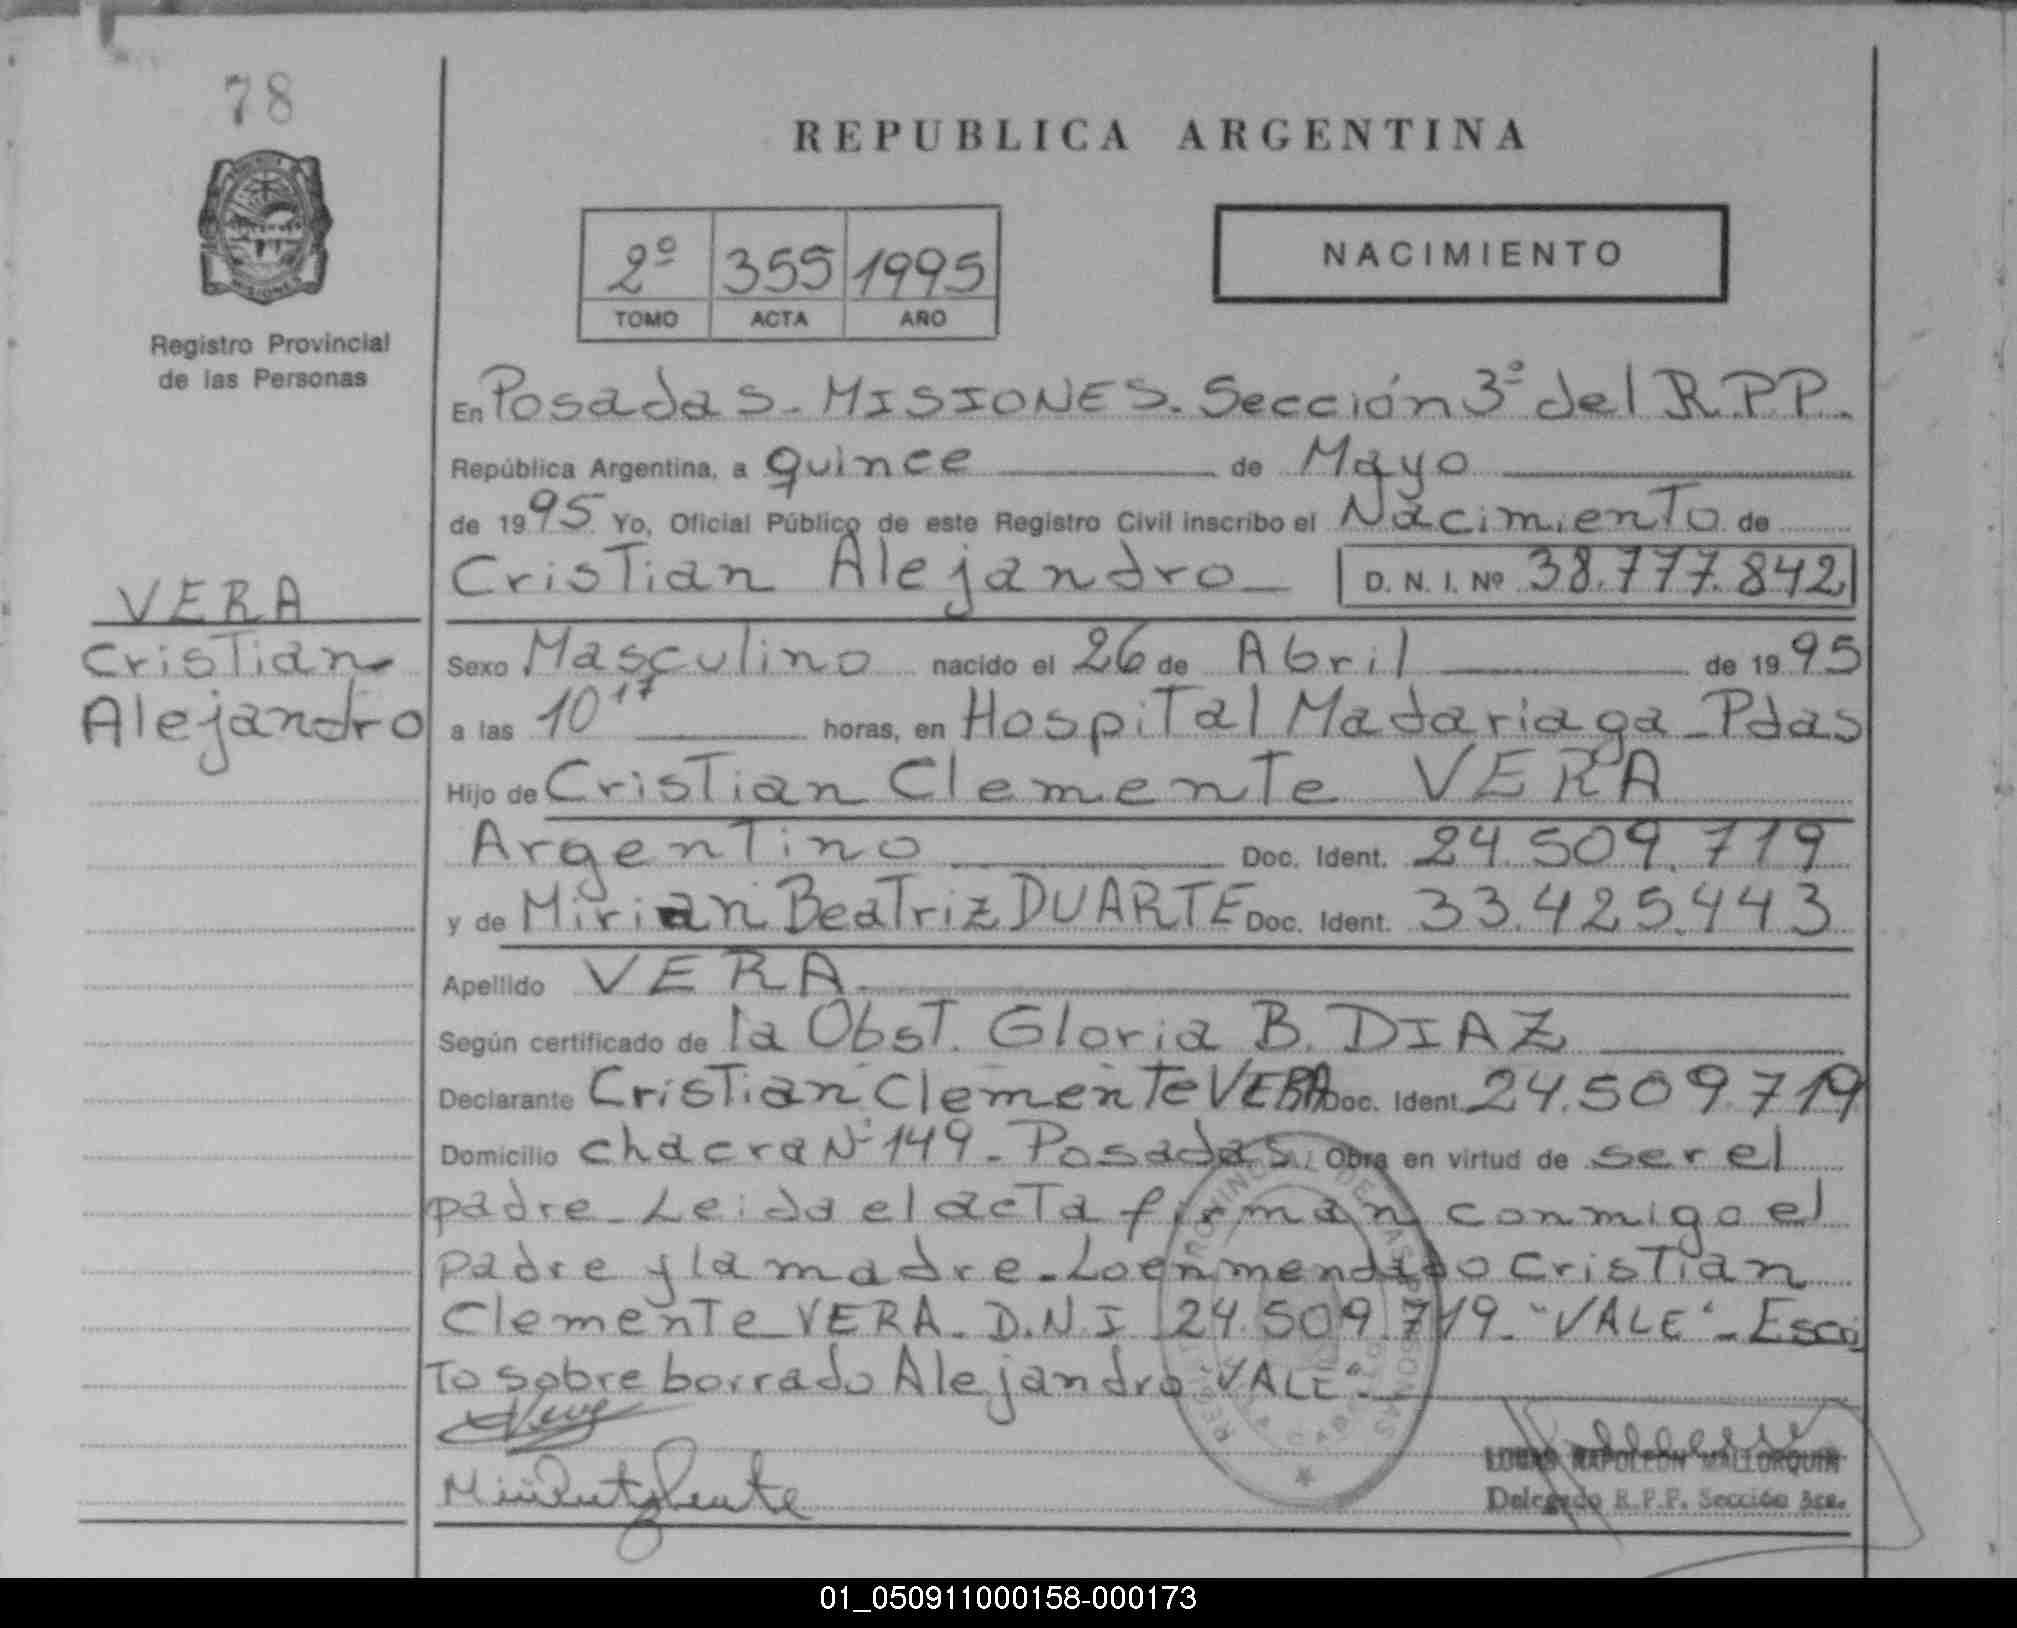 78
REPUBLICA ARGENTINA
2º 355 1995
TOMO ACTA AÑO
NACIMIENTO
Registro Provincial
de las Personas
En Posadas - MISIONES. Sección 3º del R.P.P.
República Argentina, a quince de Mayo
de 1995 Yo, Oficial Público de este Registro Civil inscribo el Nacimiento de
Cristian Alejandro D. N. I. Nº 38.777.842
VERA
Cristian
Alejandro
Sexo Masculino nacido el 26 de Abril de 1995
a las 10 17 horas, en Hospital Madariaga - Pdas
Hijo de Cristian Clemente VERA
Argentino Doc. Ident. 24.509.719
y de Mirian Beatriz DUARTE Doc. Ident. 33.425.443
Apellido VERA
Según certificado de la Obst. Gloria B. DIAZ
Declarante Cristian Clemente VERA Doc. Ident. 24.509.719
Domicilio chacra Nº 149 - Posadas. Obra en virtud de ser el
padre - Leida el acta firman conmigo el
padre y la madre - Lo enmendado Cristian
Clemente VERA - D.N.I 24.509.719 - "VALE" - Escri
to sobre borrado Alejandro "VALE" -
LUCAS NAPOLEON MALLORQUIN
Delegado R.P.P. Sección 3ra.
01_050911000158-000173